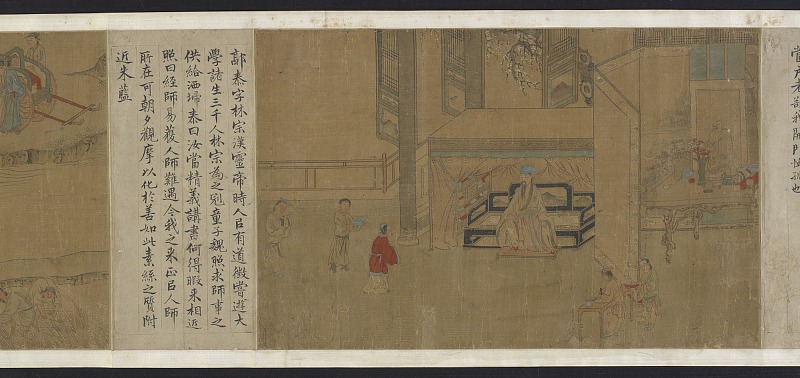 郭泰字林宗漢靈帝時人㠯有道徵嘗遊大
學諸生三千人林宗為之冠童子魏照求師事之
供給洒埽泰曰汝當精義講書何得暇來相近
照曰經師易獲人師難遇今我之來正㠯人師
所在可朝夕觀摩以化於善如此素絲之質附
近朱藍